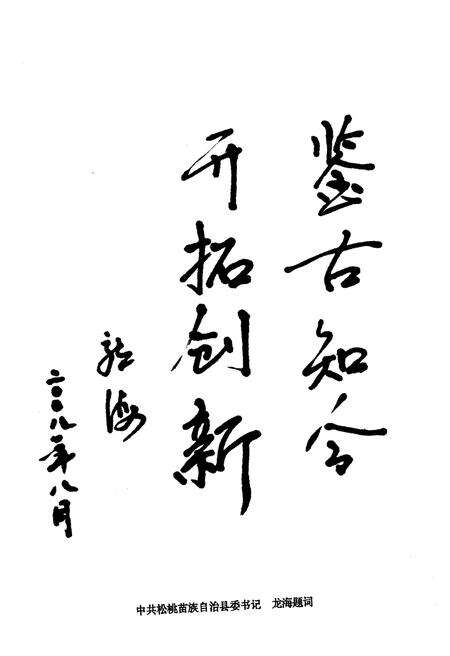 鉴古知今
开拓创新
龙海
二〇〇八年八月
中共松桃苗族自治县委书记 龙海题词